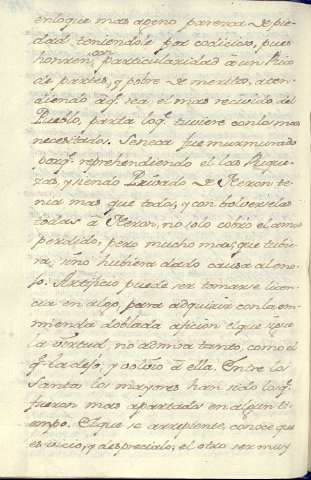 enloque mas ageno parezca de pie
dad, teniendole por codicioso, pues
honran con particularidad â un Rico
de partes, y pobre de meritos, aten-
diendo aq. sea el mas recivido del
Pueblo, pierda loq. tuviere con los mas
necesitados. Seneca fue murmurado
porq. reprehendiendo el las Rique-
zas, y siendo Privado de Neron te
nia mas que todos, y con bolverselas
todas â Neron, no solo cobró el amor
perdido, pero mucho mas, que tubie
ra, sino hubiera dado causa al eno-
jo. Artificio puede ser tomarse licen
cia en algo, para adquirir con la en-
mienda doblada aficion el que
la Virtud no admira tanto, como el
q. la dejó, y volvio â ella. Entre los
Santos los mayores han sido los q.
fueron mas apartados en algun ti-
empo. El que se arrepiente, conoce que
es vicio, y desprecialo; el otro ser muy